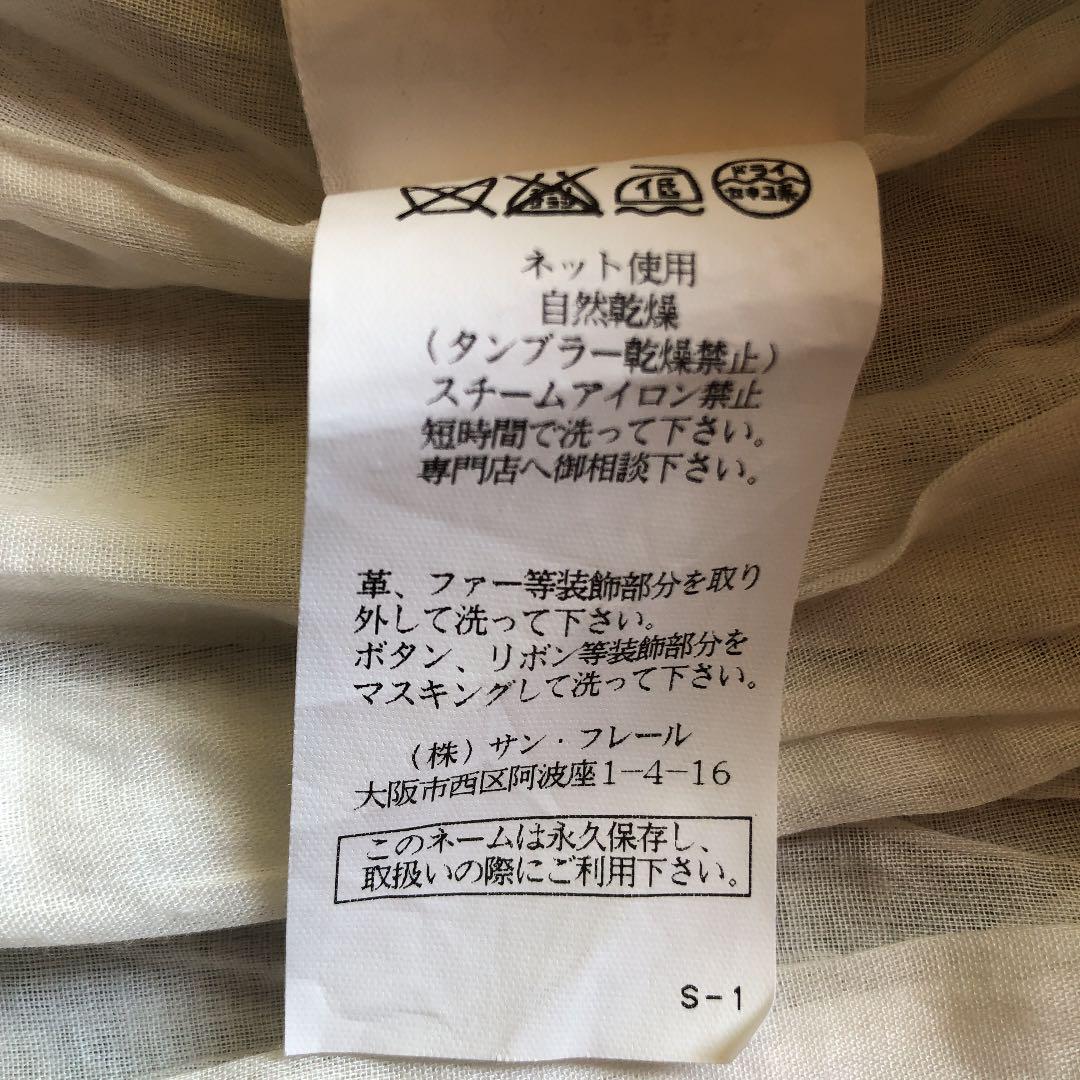 エンソサラシ 低 ドライ
セキユ系
ネット使用
自然乾燥
(タンブラー乾燥禁止)
スチームアイロン禁止
短時間で洗って下さい。
専門店へ御相談下さい。
革、ファー等装飾部分を取り
外して洗って下さい。
ボタン、リボン等装飾部分を
マスキングして洗って下さい。
(株)サン・フレール
大阪市西区阿波座1-4-16
このネームは永久保存し、
取扱いの際にご利用下さい。
S-1